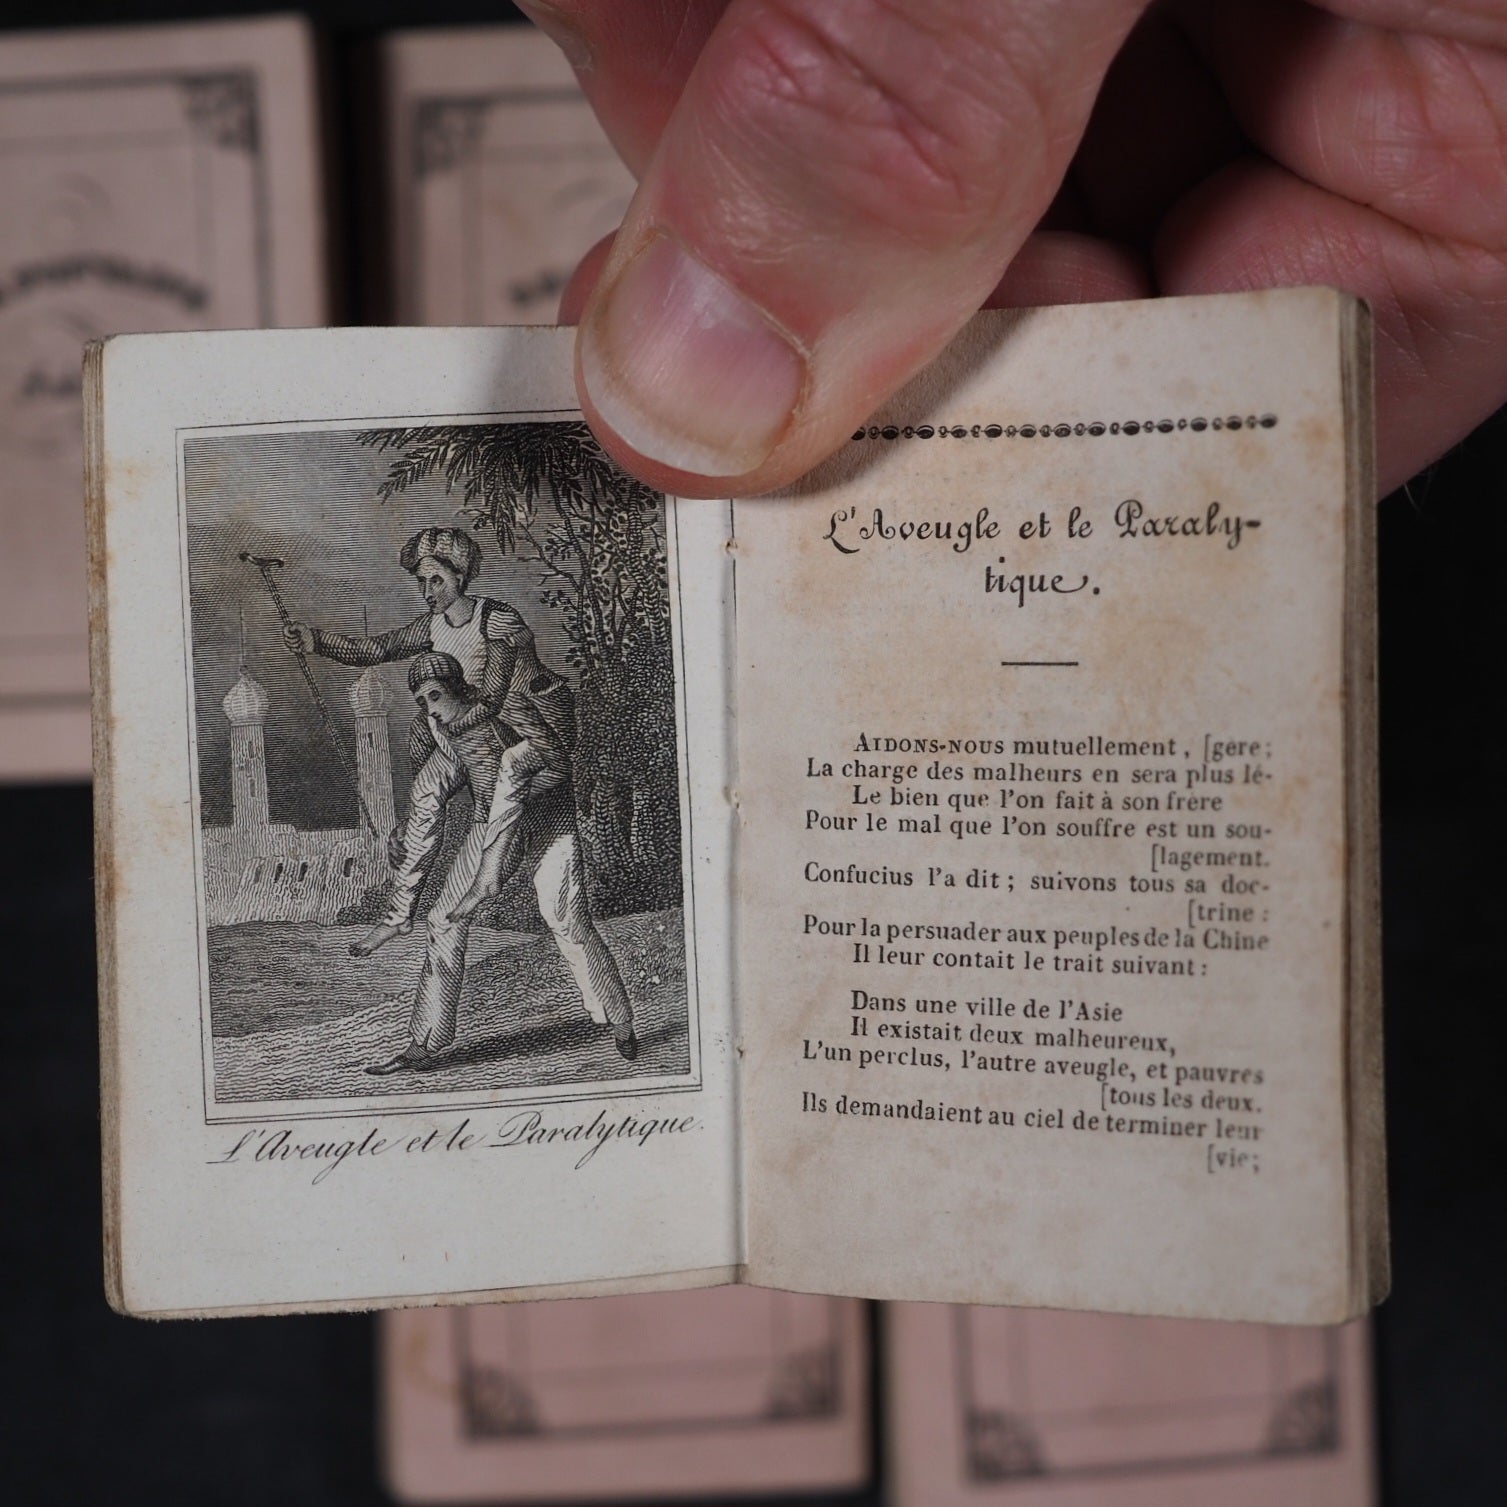 L'Aveugle et le Paralytique.
L'Aveugle et le Paraly-
tique.
AIDONS-NOUS mutuellement, [gère;
La charge des malheurs en sera plus lé-
Le bien que l'on fait à son frère
Pour le mal que l'on souffre est un sou-
[lagement.
Confucius l'a dit; suivons tous sa doc-
[trine :
Pour la persuader aux peuples de la Chine
Il leur contait le trait suivant :
Dans une ville de l'Asie
Il existait deux malheureux,
L'un perclus, l'autre aveugle, et pauvres
[tous les deux.
Ils demandaient au ciel de terminer leur
[vie;